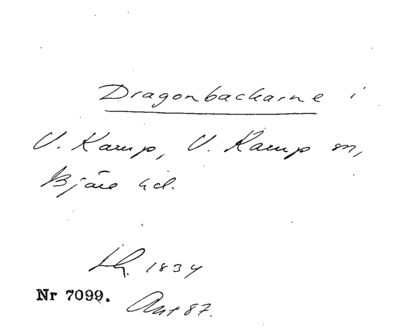 Dragonbackarne i
V. Karup, V. Karup sn,
Bjäre hd.
Lh. 1834
Nr 7099.
Ant 87.